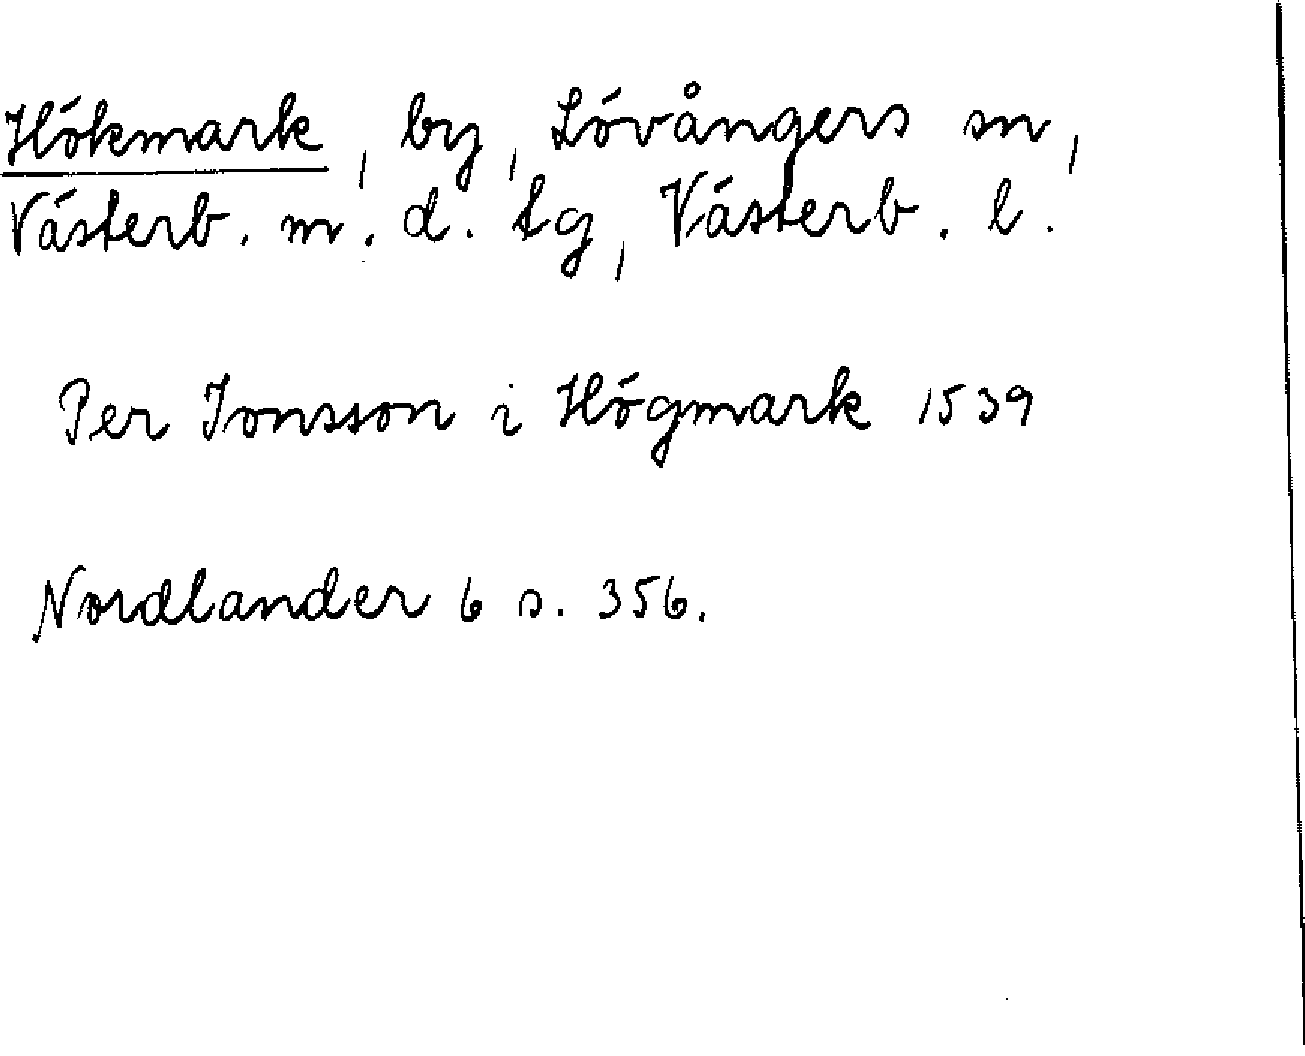 Hökmark, by, Lövångers sn,
Västerb. m. d. tg, Västerb. l.
Per Jonsson i Högmark 1539
Nordlander 6 s. 356.